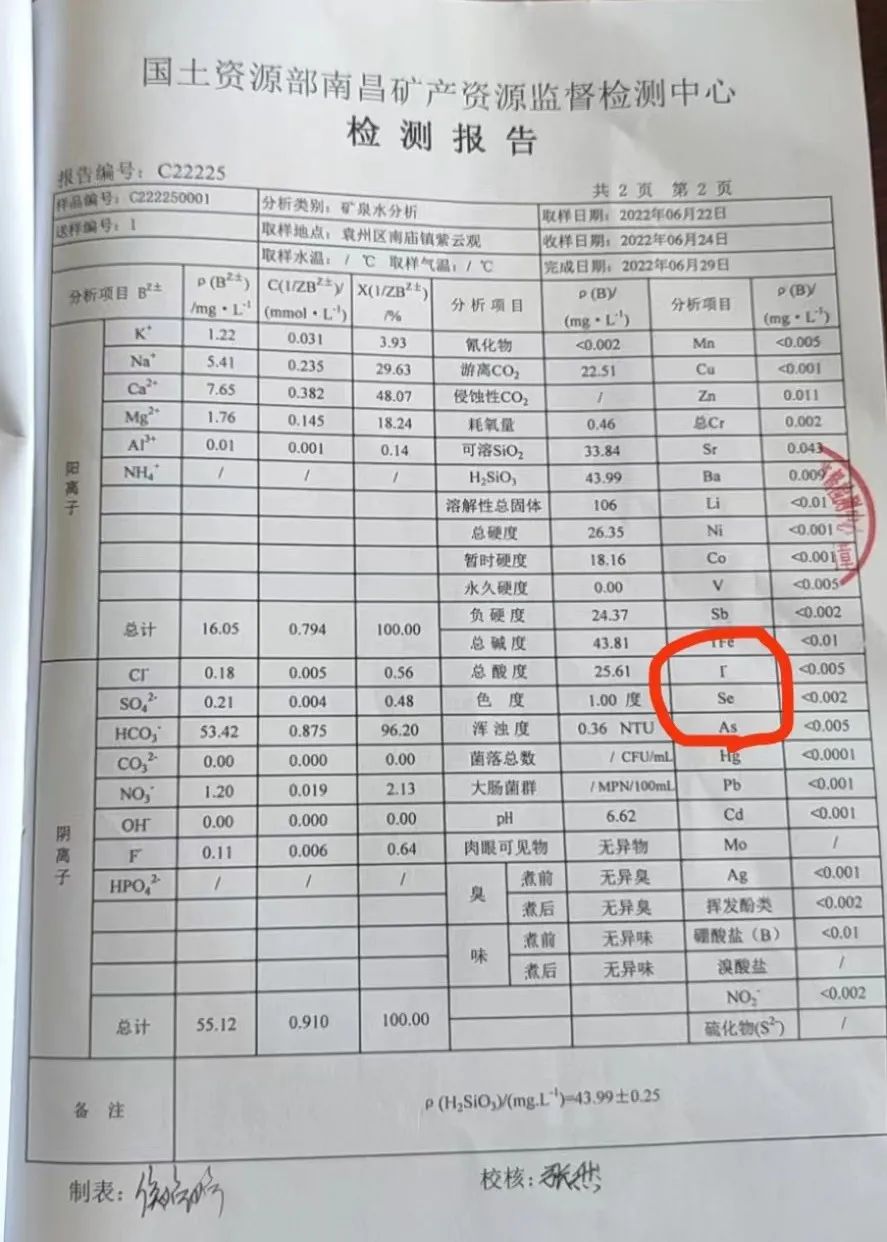 国土资源部南昌矿产资源监督检测中心
检测报告
报告编号：C22225
共 2 页 第 2 页
样品编号：C222250001 分析类别：矿泉水分析 取样日期：2022年06月22日
送样编号：1 取样地点：袁州区南庙镇紫云观 收样日期：2022年06月24日
取样水温：/ ℃ 取样气温：/ ℃ 完成日期：2022年06月29日
分析项目 B^Z± ρ(B^Z±)/mg·L⁻¹ C(1/ZB^Z±)/(mmol·L⁻¹) X(1/ZB^Z±)/% 分析项目 ρ(B)/(mg·L⁻¹) 分析项目 ρ(B)/(mg·L⁻¹)
阳离子
K⁺ 1.22 0.031 3.93 氰化物 <0.002 Mn <0.005
Na⁺ 5.41 0.235 29.63 游离CO₂ 22.51 Cu <0.001
Ca²⁺ 7.65 0.382 48.07 侵蚀性CO₂ / Zn 0.011
Mg²⁺ 1.76 0.145 18.24 耗氧量 0.46 总Cr 0.002
Al³⁺ 0.01 0.001 0.14 可溶SiO₂ 33.84 Sr 0.043
NH₄⁺ / / / H₂SiO₃ 43.99 Ba 0.009
溶解性总固体 106 Li <0.01
总硬度 26.35 Ni <0.001
暂时硬度 18.16 Co <0.001
永久硬度 0.00 V <0.005
总计 16.05 0.794 100.00 负硬度 24.37 Sb <0.002
总碱度 43.81 TFe <0.01
阴离子
Cl⁻ 0.18 0.005 0.56 总酸度 25.61 I⁻ <0.005
SO₄²⁻ 0.21 0.004 0.48 色 度 1.00 度 Se <0.002
HCO₃⁻ 53.42 0.875 96.20 浑浊度 0.36 NTU As <0.005
CO₃²⁻ 0.00 0.000 0.00 菌落总数 / CFU/mL Hg <0.0001
NO₃⁻ 1.20 0.019 2.13 大肠菌群 / MPN/100mL Pb <0.001
OH⁻ 0.00 0.000 0.00 pH 6.62 Cd <0.001
F⁻ 0.11 0.006 0.64 肉眼可见物 无异物 Mo /
HPO₄²⁻ / / / 臭 煮前 无异臭 Ag <0.001
煮后 无异臭 挥发酚类 <0.002
味 煮前 无异味 硼酸盐（B） <0.01
煮后 无异味 溴酸盐 /
NO₂⁻ <0.002
总计 55.12 0.910 100.00 硫化物(S²⁻) /
备 注 ρ(H₂SiO₃)/(mg.L⁻¹)=43.99±0.25
制表：
校核：